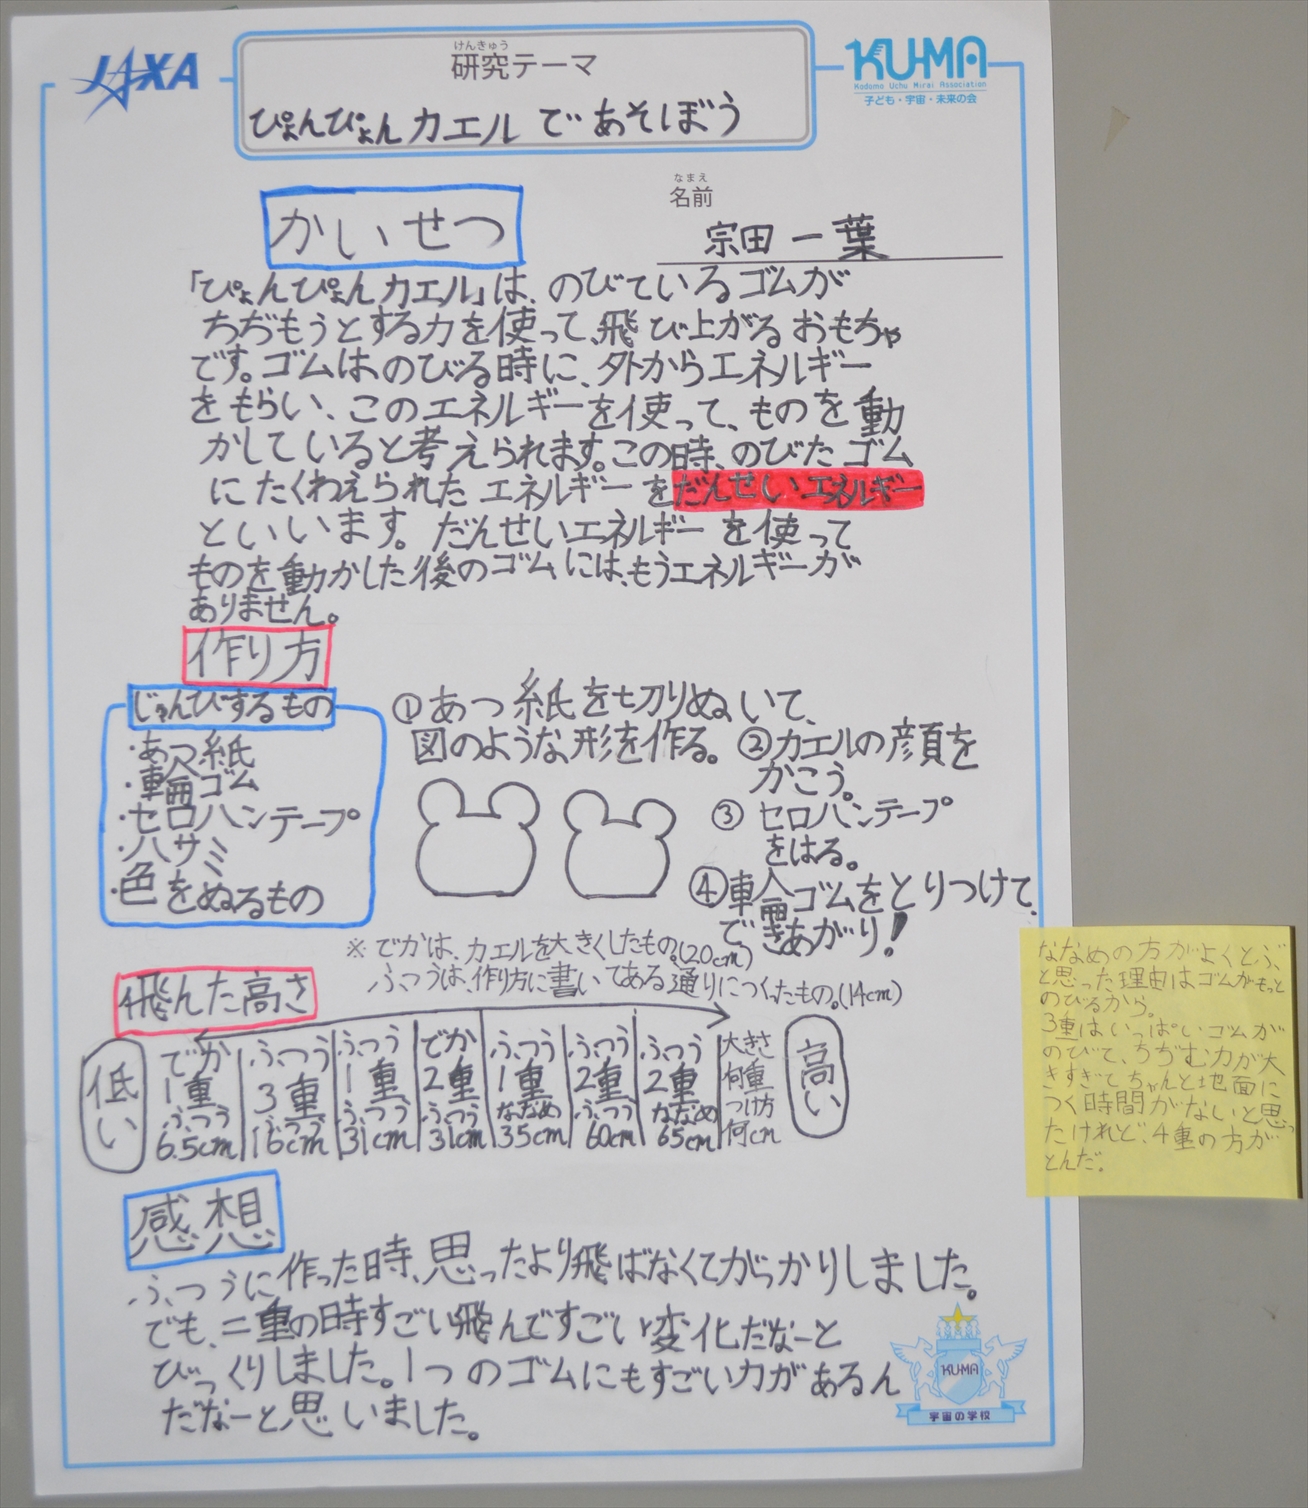 JAXA
けんきゅう
研究テーマ
ぴょんぴょんカエルであそぼう
KU-MA
Kodomo Uchu Mirai Association
子ども・宇宙・未来の会
なまえ
名前
宗田 一葉
かいせつ
「ぴょんぴょんカエル」は、のびているゴムが
ちぢもうとする力を使って、飛び上がるおもちゃ
です。ゴムは、のびる時に、外からエネルギー
をもらい、このエネルギーを使って、ものを動
かしていると考えられます。この時、のびたゴム
にたくわえられたエネルギーをだんせいエネルギー
といいます。だんせいエネルギーを使って
ものを動かした後のゴムには、もうエネルギーが
ありません。
作り方
じゅんびするもの
・あつ紙
・輪ゴム
・セロハンテープ
・ハサミ
・色をぬるもの
①あつ紙を切りぬいて、
図のような形を作る。
②カエルの顔を
かこう。
③セロハンテープ
をはる。
④輪ゴムをとりつけて、
できあがり!
※でかは、カエルを大きくしたもの。(20cm)
ふつうは、作り方に書いてある通りにつくったもの。(14cm)
飛んた高さ
低い
でか
1重
ふつう
6.5cm
ふつう
3重
ふつう
16cm
ふつう
1重
ふつう
31cm
でか
2重
ふつう
31cm
ふつう
1重
ななめ
35cm
ふつう
2重
ふつう
60cm
ふつう
2重
ななめ
65cm
大きさ
何重
つけ方
何cm
高い
感想
ふつうに作った時、思ったより飛ばなくてがっかりしました。
でも、二重の時すごい飛んですごい変化だなーと
びっくりしました。1つのゴムにもすごい力があるん
だなーと思いました。
KU-MA
宇宙の学校
ななめの方がよくとぶ、
と思った理由はゴムがもっと
のびるから。
3重はいっぱいゴムが
のびて、ちぢむ力が大
きすぎて、ちゃんと地面に
つく時間がないと思っ
たけれど、4重の方が
とんだ。